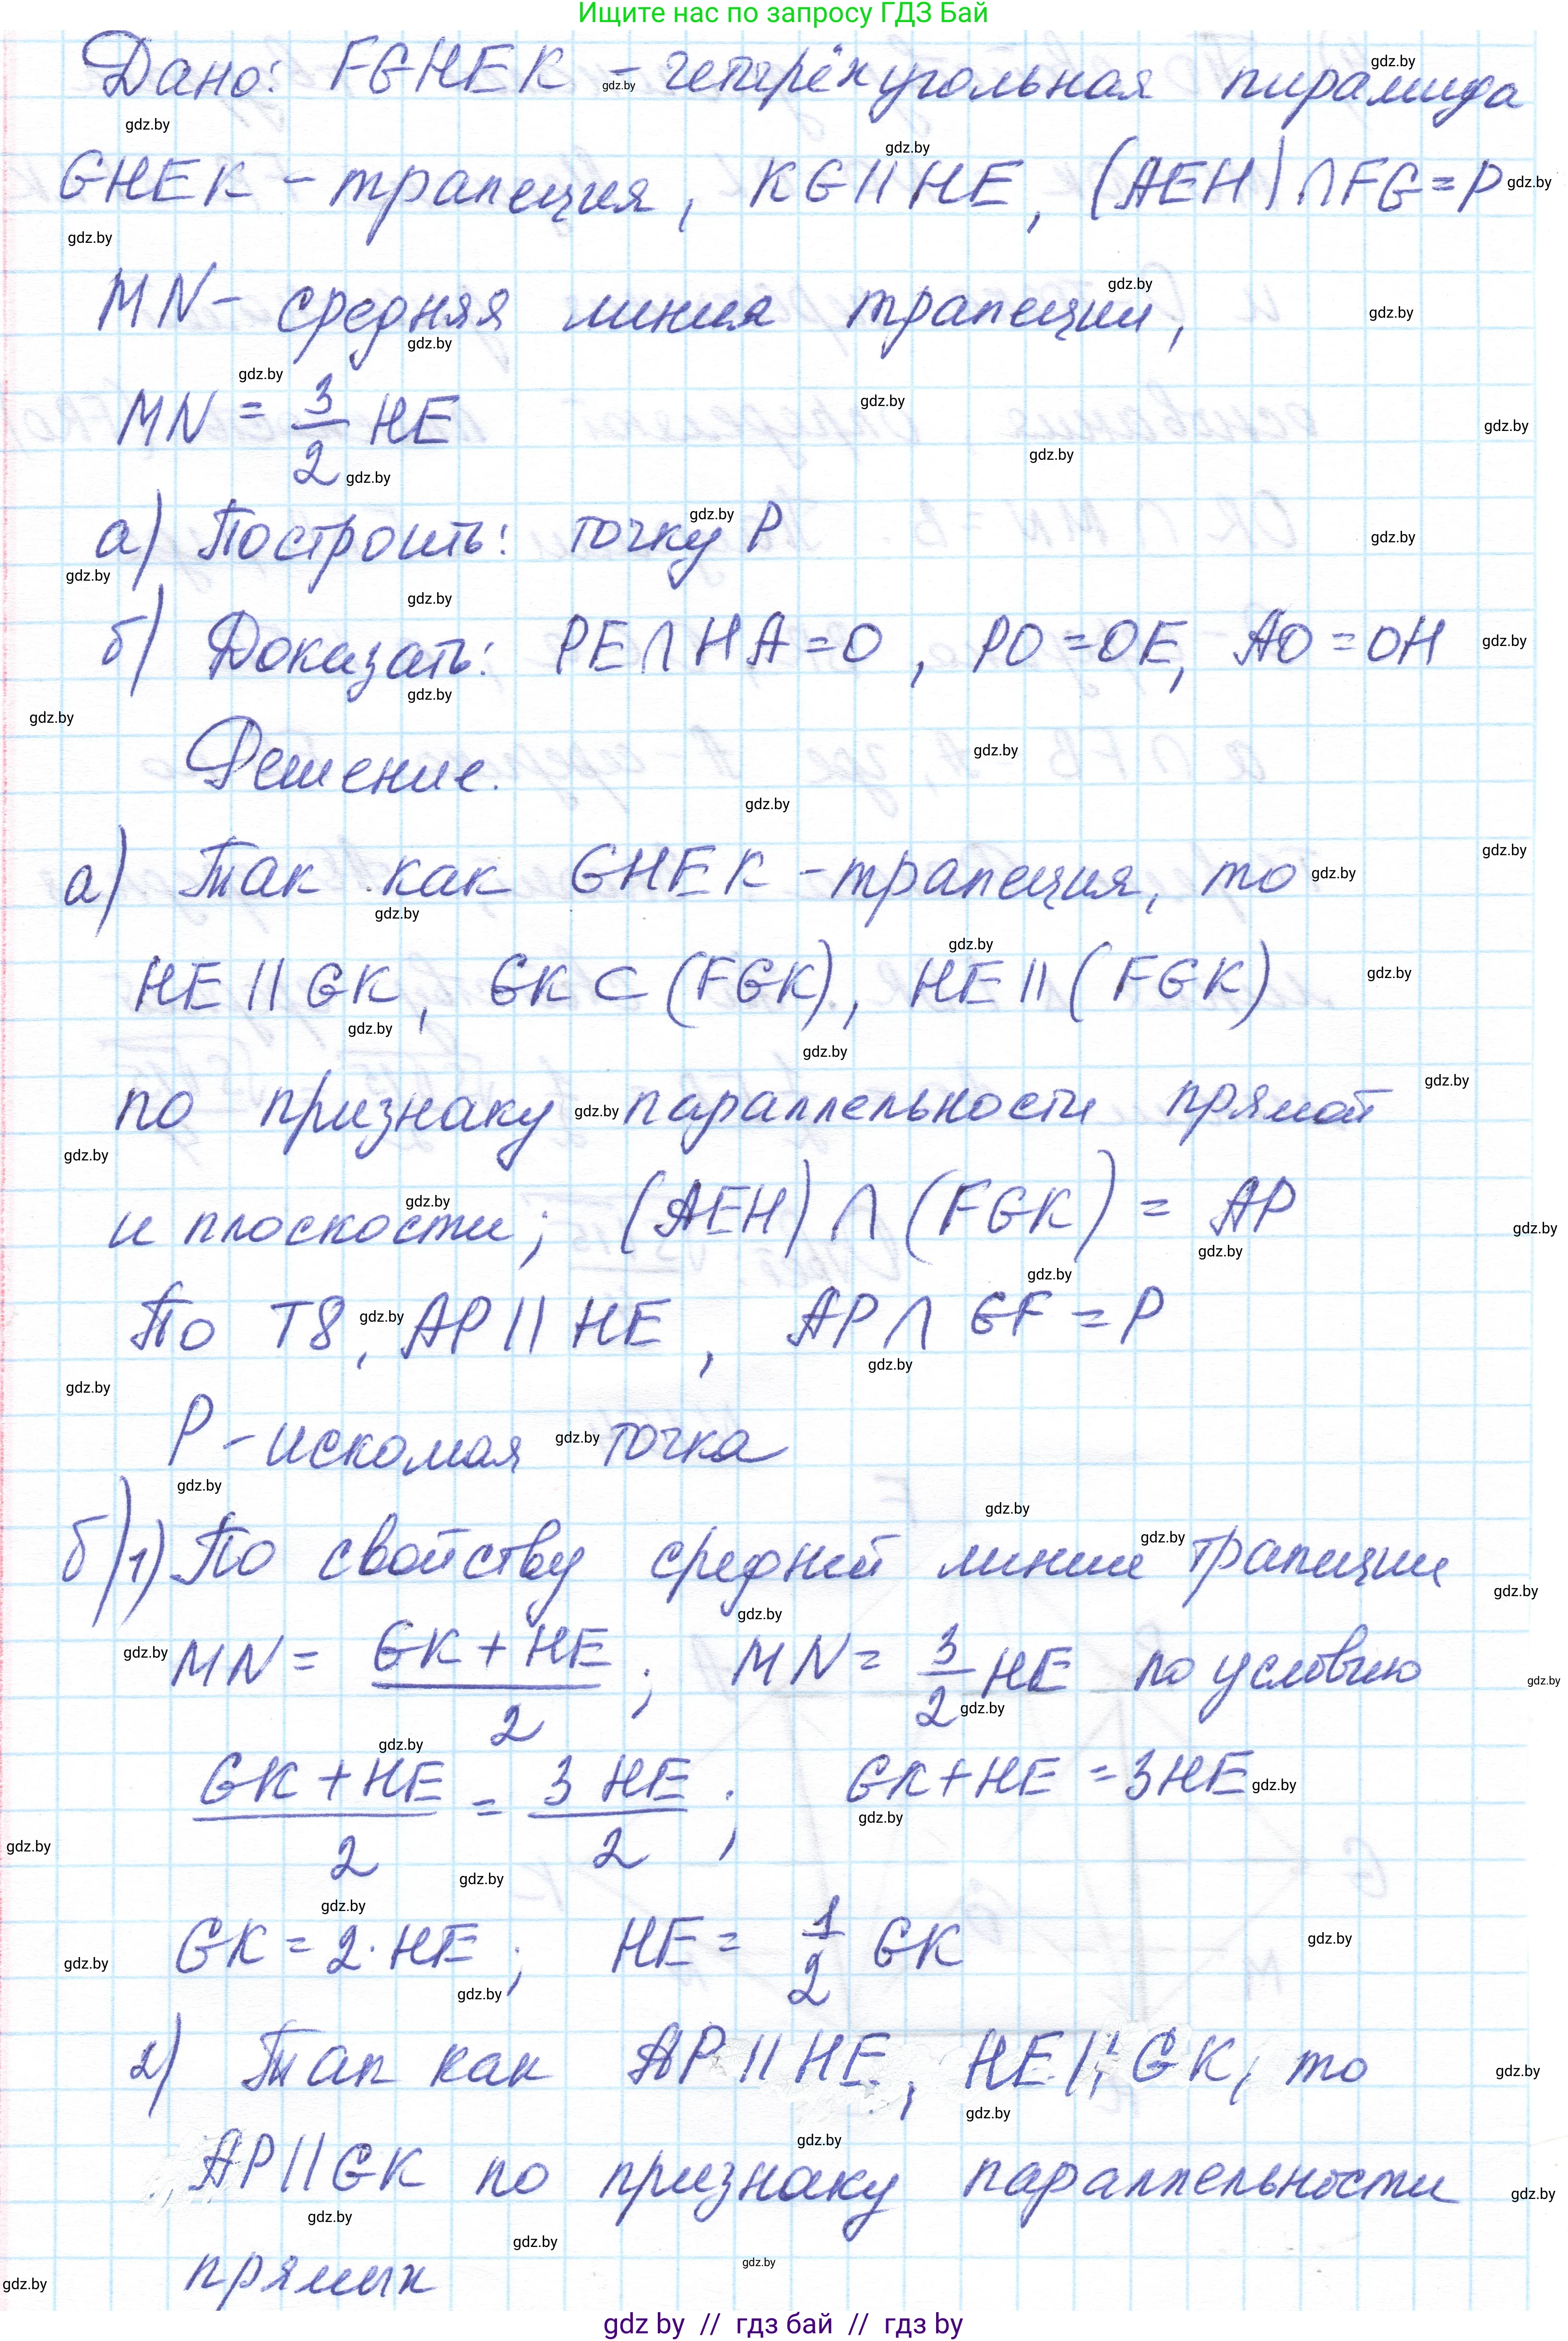 Ищите нас по запросу ГДЗ Бай
Дано: FGHEK – четырёхугольная пирамида
GHEK – трапеция, KG || HE, (AEH) ∩ FG = P
MN – средняя линия трапеции,
MN = 3/2 HE
а) Построить: точку P
б) Доказать: PE ∩ HA = O, PO = OE, AO = OH
Решение.
а) Так как GHEK – трапеция, то
HE || GK, GK ⊂ (FGK), HE || (FGK)
по признаку параллельности прямой
и плоскости; (AEH) ∩ (FGK) = AP
По T8, AP || HE, AP ∩ GF = P
P – искомая точка
б) 1) По свойству средней линии трапиции
MN = (GK + HE)/2; MN = 3/2 HE по условию
(GK + HE)/2 = 3 HE/2; GK + HE = 3HE
GK = 2 · HE; HE = 1/2 GK
2) Так как AP || HE, HE || GK, то
AP || GK по признаку параллельности
прямых
gdz by // гдз бай // гдз by